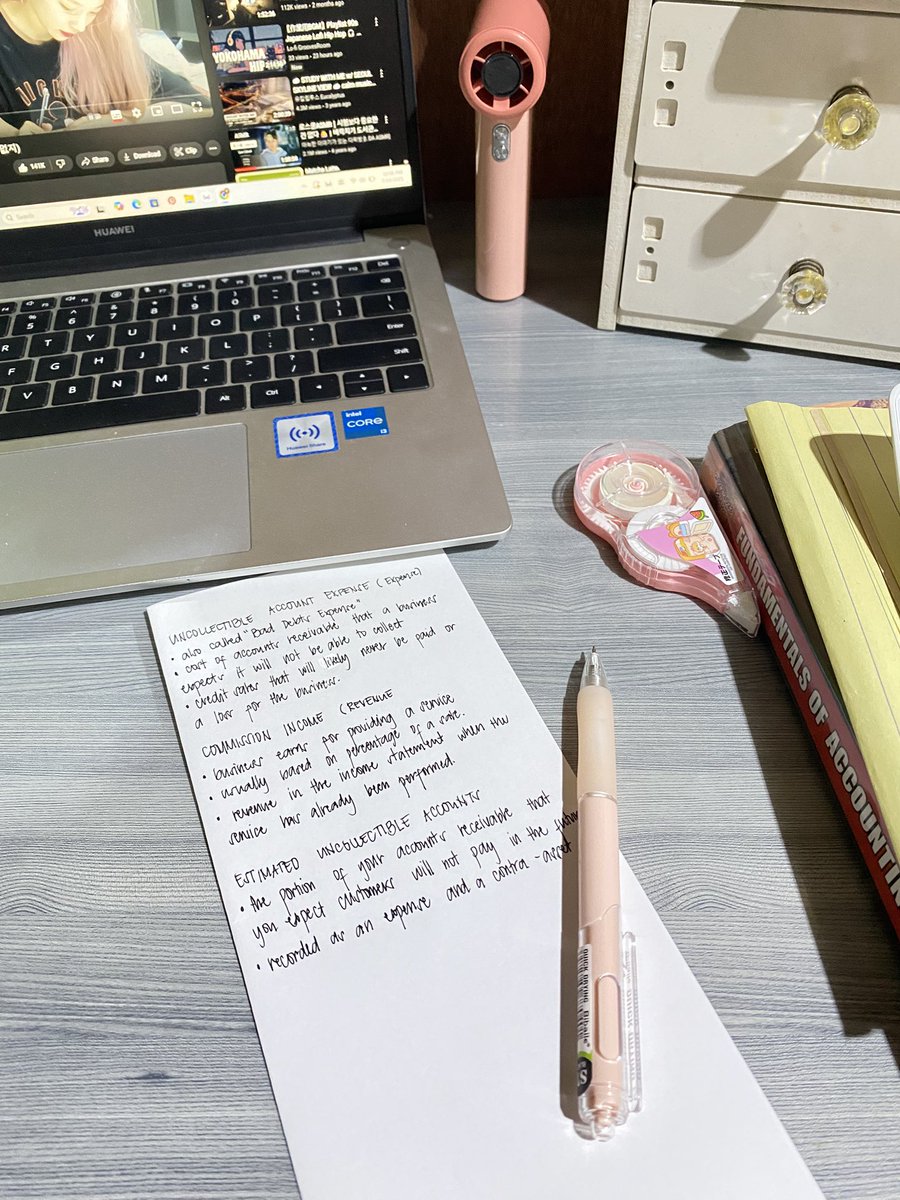 112K views • 2 months ago
Japanese Lofi Hip Hop
Lofi GrooveRoom
33 views • 23 hours ago
New
YOKOHAMA
STUDY WITH ME w/ SEOUL
4.2M views • 3 years ago
141K
Share
Download
Clip
Search
HUAWEI
F11
F12
Del
5
6
7
8
9
0
R
T
Y
U
I
O
P
Enter
F
G
H
J
K
L
Shift
V
B
N
M
Alt
Ctrl
Huawei Share
intel
CORE
i3
UNCOLLECTIBLE ACCOUNT EXPENSE (Expense)
• also called "Bad Debts Expense"
• cost of accounts receivable that a business
expects it will not be able to collect
• credit sales that will likely never be paid or
a loss for the business.
COMMISSION INCOME (REVENUE
• business earns for providing a service
• usually based on percentage of a sale.
• revenue in the income statement when the
service has already been performed.
ESTIMATED UNCOLLECTIBLE ACCOUNTS
• the portion of your accounts receivable that
you expect customers will not pay in the future
• recorded as an expense and a contra-asset
FUNDAMENTALS OF ACCOUNTIN
QUICK DRYING